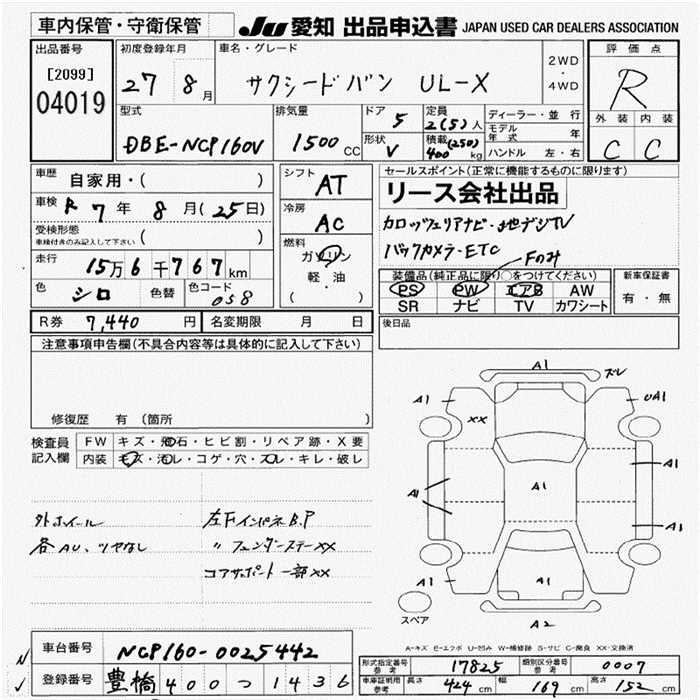 車内保管・守衛保管
JU 愛知 出品申込書 JAPAN USED CAR DEALERS ASSOCIATION
出品番号
[2099]
04019
初度登録年月
27 8月
車名・グレード
サクシードバン UL-X
2WD
・
4WD
評価点
R
外装 内装
C C
型式
DBE-NCP160V
排気量
1500 CC
ドア 5
形状 V
定員 2(5)人
積載 (250) 400 kg
ディーラー・並行
モデル年式 年
ハンドル 左・右
車歴 自家用・( )
車検 R 7年 8月(25日)
受検形態
車検付きのみ記入して下さい ( )
走行 15万6千767km
色 シロ 色替 色コード 058
シフト AT
冷房 AC
燃料
ガソリン
軽・油
( )
セールスポイント(正常に機能するものに限ります)
リース会社出品
カロッツェリアナビ・地デジTV
バックカメラ・ETC
Fのみ
装備品(純正品に限り○をつけてください)
PS PW エアB AW
SR ナビ TV カワシート
新車保証書
有・無
R券 7,440円 名変期限 月 日
後日品
注意事項申告欄(不具合内容等は具体的に記入して下さい)
修復歴 有(箇所 )
検査員記入欄
FW キズ・飛石・ヒビ割・リペア跡・X要
内装 キズ・汚レ・コゲ・穴・スレ・キレ・破レ
外ホイール
各AU、ツヤなし
左Fインパネ B.P
〃 フェンダーステー XX
コアサポート一部XX
A1 ズレ
A1 UA1
XX
A1 A1 A1
A1
A1 A1 A1
A2
スペア
A-キズ E-エクボ U-凹み W-補修跡 S-サビ C-腐食 XX-交換済
車台番号 NCP160-0025442
登録番号 豊橋400つ1436
形式指定番号 参考 17825 類別区分番号 参考 0007
車庫証明用 参考 長さ 424 cm 幅 169 cm 高さ 152 cm